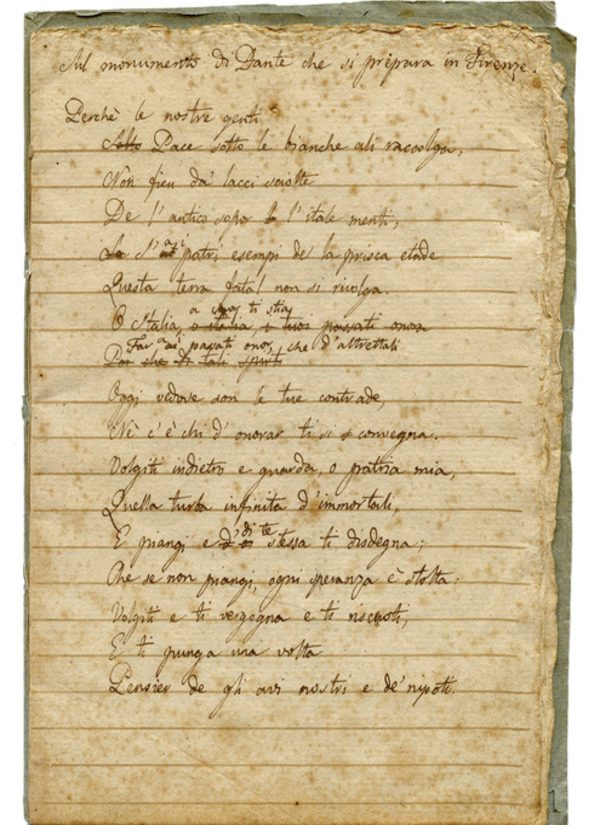 Sul monumento di Dante che si prepara in Firenze.
Perchè le nostre genti
Pace sotto le bianche ali raccolga,
Non fien da' lacci sciolte
De l'antico sopor l'itale menti,
S'ai patri esempi de la prisca etade
Questa terra fatal non si rivolga.
a cuor ti stia
O Italia, o italia, i tuoi passati onor
Far ai passati onor, che d'altrettali
Poi che di tali spirti
Oggi vedove son le tue contrade,
Nè c'è chi d'onorar ti si convegna.
Volgiti indietro e guarda, o patria mia,
Quella turba infinita d'immortali,
di te
E piangi e stessa ti disdegna;
Che se non piangi, ogni speranza è stolta:
Volgiti e ti vergogna e ti riscuoti,
E ti punga una volta
Pensier de gli avi nostri e de' nipoti.